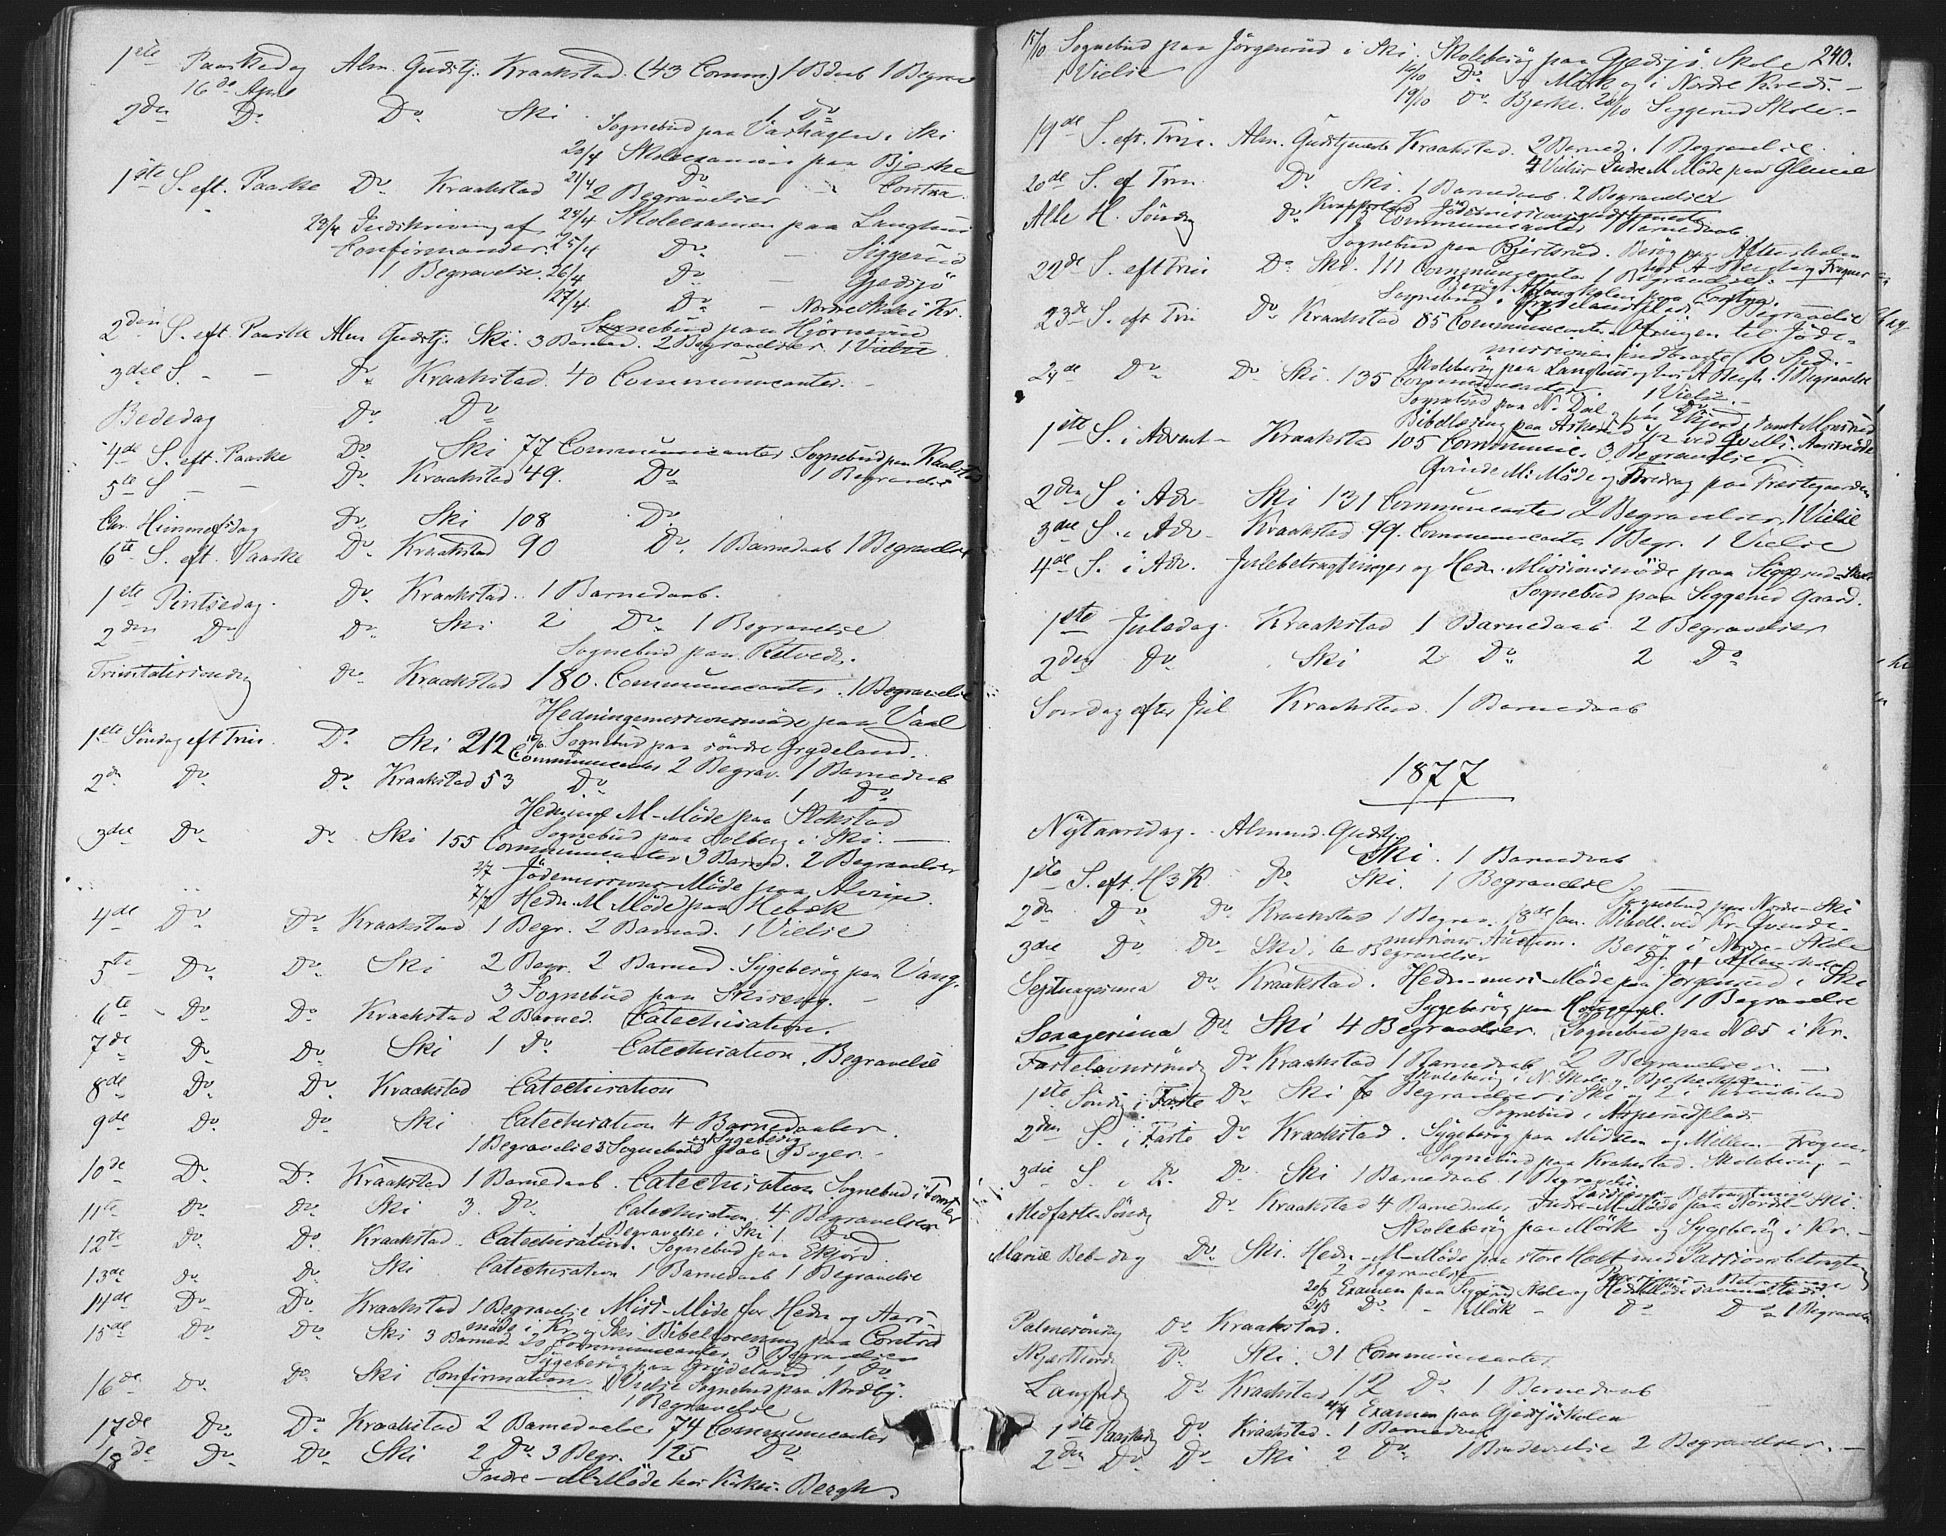 1ste Paaskedag Alm. Gudstj. Kraakstad (43 Comm) 1 Bdaab 1 Begrav
16de April
2den Do Do Ski 1 Do
Sognebud paa Vaxhagen i Ski
20/4 Skoleexamen paa Bjerke
21/4 Do Contra
1ste S. eft. Paaske Do Kraakstad 2 Begravelser
23/4 Indskrivning af 24/4 Skoleexamen paa Langhus
Confirmander. 25/4 Do Siggerud
1 Begravelse. 26/4 Do Gjedsjö
27/4 Do Nordre Skole i Kr.
Sognebud paa Hjörnerud
2den S. eft. Paaske Alm Gudstj. Ski. 3 Barned. 2 Begravelser 1 Vielse
3die S. - - Do Kraakstad. 40 Communicanter. -
Bededag Do Do
4de S. eft. Paaske Do Ski 77 Communicanter Sognebud paa Kaalstad
5te S - - Do Kraakstad 49. Do 1 Begravelse
Chr. Himmelfdag Do Ski 108 Do
6te S. eft. Paaske Do Kraakstad 90 Do. 1 Barnedaab 1 Begravelse
1ste Pintsedag. Do Kraakstad. 1 Barnedaab.
2den Do Do Ski 2 Do. 1 Begravelse
Sognebud paa Retvedt.
Trinitatissöndag Do Kraakstad 180. Communicanter. 1 Begravelse
Hedningemissionsmöde paa Vaal
Sognebud paa söndre Grydeland.
1ste Söndag eft Trin. Do Ski 212 Communicanter 2 Begrav. 1 Barnedaab
2den Do Do Kraakstad 53 Do 1 Do
Hedninge M-Möde paa Stokstad
Sognebud paa Solberg i Ski.
3die Do Do Ski 155 Communicanter 3 Barned. 2 Begravelser
2/7 Jödemissions-Möde paa Alvinge.
7/7 Hedn. M Möde paa Hebæk
4de Do Do Kraakstad 1 Begr. 2 Barned. 1 Vielse
5te Do Do Ski 2 Begr. 2 Barned. Sygebesög paa Vang.
3 Sognebud paa Skireng.
6te Do Do Kraakstad 2 Barned. Catechisation.
7de Do Do Ski 1 Do Catechisation. Begravelse
8de Do Do Kraakstad Catechisation
9de Do Do Ski Catechisation 4 Barnedaaber.
1 Begravelse 3 Sognebud og Sygebesög paa Bøger -
10de Do Do Kraakstad 1 Barnedaab. Catechisation Sognebud i Tomter
11te Do Do Ski 3. Do Catechisation 4 Begravelser
1 Begravelse i Ski 1. Do
12te Do Do Kraakstad. Catechisation. Sognebud paa Ekjörd
13de Do Do Ski Catechisation 1 Barnedaab 1 Begravelse
14de Do Do Kraakstad 1 Begravelse Miss-Möde for Hedn og Aars-
möde i Kr. og Ski. Bibelforening paa Contra
15de Do Do Ski 3 Barned. 20 Communicanter 3 Begravelser
Sygebesög paa Grydeland 1 Do
16de Do Do Ski Confirmation. 1 Vielse Sognebud paa Nordby.
1 Begravelse
17de Do Do Kraakstad 2 Barnedaaber 74 Communicanter
18de Do Do Ski 2 Do 3 Begr. 125 Do
Indre-M-Möde hos Kirkes. Bergh.
15/10 Sognebud paa Jörgenrud i Ski. Skolebesög paa Gjedsjö Skole 240.
1 Vielse 16/10 Do Mörk og i Nordre Kreds. -
19/10 Do. Bjerke. 20/10 Siggerud Skole. -
19de S. eft. Trin. Alm. Gudstjeneste Kraakstad. 2 Barned. 1 Begravelse.
4 Vielser Indre M Möde paa Glenne
20de S. ef Trin Do Ski. 1 Barnedaab. 2 Begravelser
Alle H. Söndag Do Kraakstad 73 Communicanter 1 Barnedaab
Sognebud paa Bjertsrud. Besög paa Aftenskolen
22de S. eft Trin Do Ski. 111 Communicanter 1 Begravelse.
23de S. eft Trin Do Kraakstad 85 Communicanter 1 Begravelse
til Jöde-
missionen indbragte 10 Spd. -
Skolebesög paa Langhus A Bergh. 1 Begravelse
24de Do Do Ski. 135 Communicanter 1 Vielse. -
Sognebud paa N. Dal
1ste S. i Advent - Kraakstad 105 Communic. 3 Begravelser
Qvinde Mi Möde og Foredrag paa Præstegaarden
2den S i Adv - Ski 131 Communicanter 2 Begravelser 1 Vielse
3die S. i Adv - Kraakstad 99. Communicanter 1 Begr. 1 Vielse
4de S. i Adv. Julebetragtninger og Hedn. Missionsmöde paa Siggerud Skole
Sognebud paa Siggerud Gaard.
1ste Juledag. Kraakstad 1 Barnedaab 2 Begravelser
2den Do Ski 2 Do 2 Do
Sondag efter Jul Kraakstad. 1 Barnedaab
1877
Nytaarsdag. Almind. Gudstj.
Ski. 1 Barnedaab
1ste S. eft. H3K Do Ski. 1 Begravelse
Sognebud paa Nordre-Ski
2den Do Do Kraakstad 1 Begrav. 18de Jan. Bibell. ved Kr. Qvinde-
missions Auction. Besög i Nordre-Skole
3die Do Do Ski. 6 Begravelser
Septuagesima Do Kraakstad. Hedn-miss-Möde paa Jörgenrud i Ski
Sygebesög paa 1 Begravelse
Sexagesima Do Ski 4 Begravelser. Sognebud paa Næs i Kr.
Fastelavnssöndag Do Kraakstad 1 Barnedaab 2 Begravelser. -
Skolebesög i N. Skole og Bjerke
1ste Söndag i Faste Do Ski 7 Begravelser i Ski og 2 i Kraakstad
Sognebud i Aspenrudplads
2den S. i Faste Do Kraakstad. Sygebesög paa Midsem og Mellem - Frogner
Sognebud paa Krakstad. Skolebesög -
3die S. i Do. Do. Ski 1 Barnedaab 1 Begravelse
Midfaste-Söndag Do Kraakstad 4 Barnedaaber Indre-M-Möde paa Nordre-Ski.
Skolebesög paa Mörk og Sygebesög i Kr. -
Mariæ Beb-dag Do Ski. Hedn-M-Möde paa store Holt med Passionsbetragtning
2 Begravelse
20/3 Examen paa Siggerud Skole og Hedn Möde sammesteds
21/3 Do - Mörk - Do Do 1 Begravelse
Palmesöndag Do Kraakstad.
Skjærthorsd Do. Ski. 31 Communicanter
Langfred Do Kraakstad 12 Do 1 Barnedaab
4/4 Examen paa Gjedsjöskolen
1ste Paaskedag Do Kraakstad. 1 Barnedaab
2den Do Do Ski 2 Do 1 Brudevielse 2 Begravelser. -